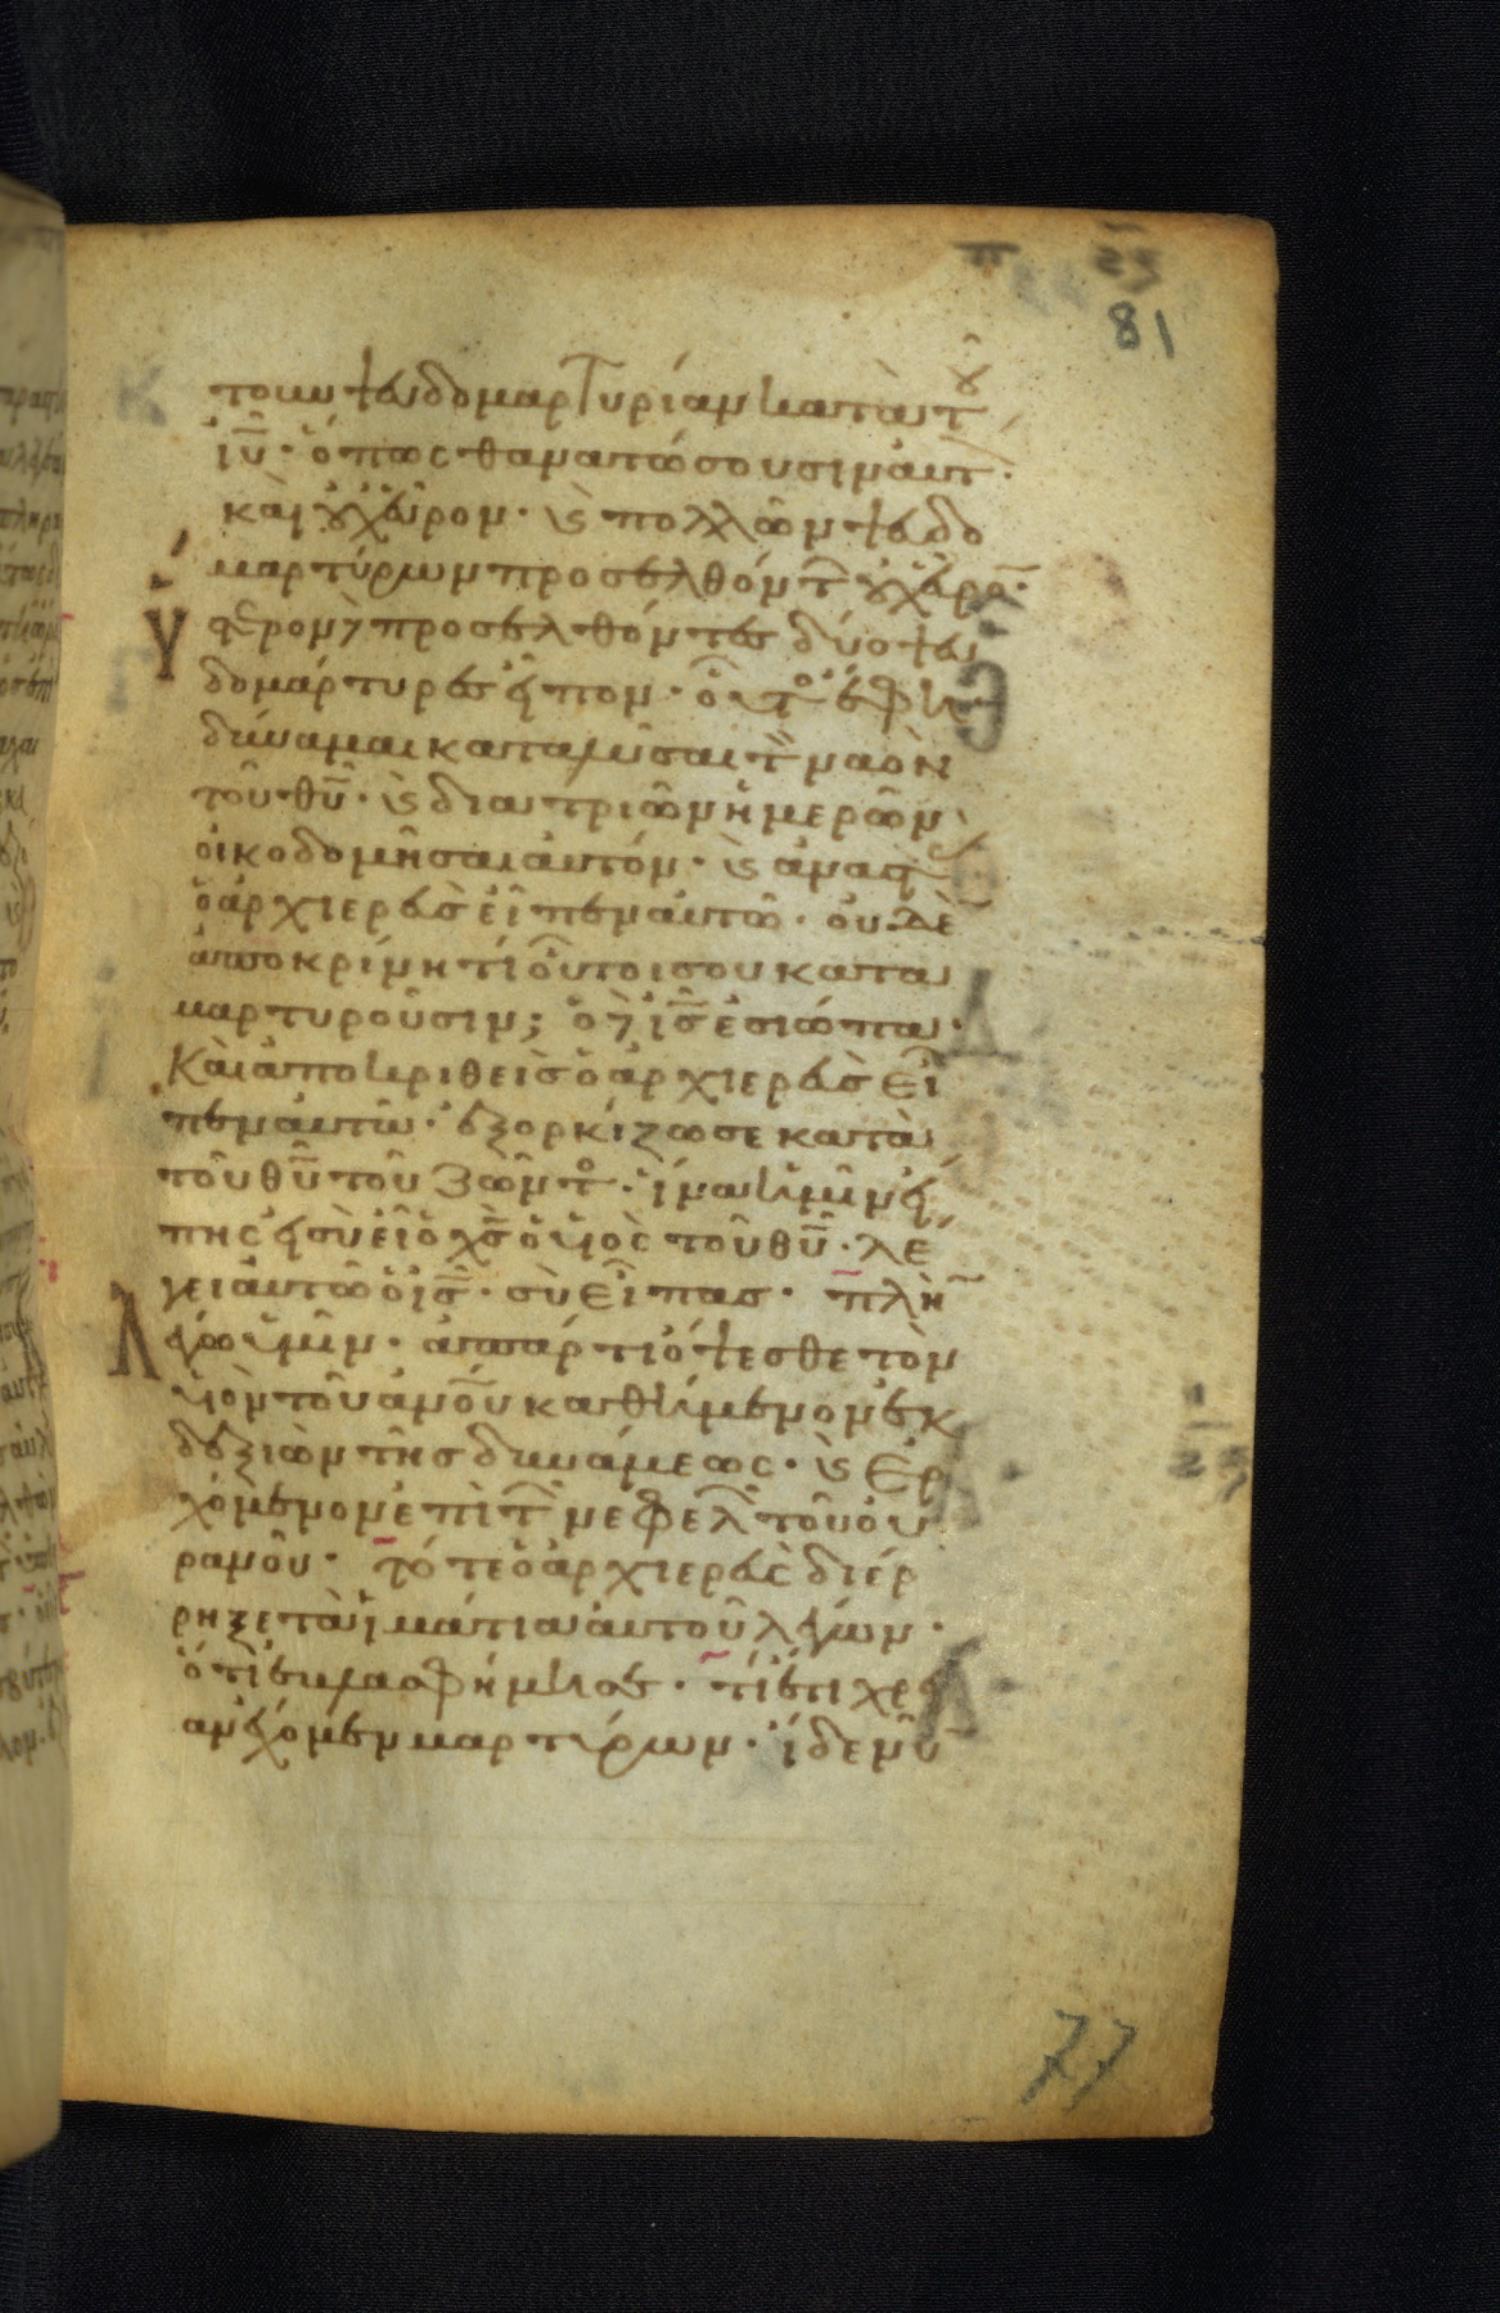 81
τουν ψευδομαρτυρίαν κατὰ τοῦ
ἰῦ· ὅπως θανατώσουσιν ἀυτ·
καὶ οὐχ εὗρον· καὶ πολλῶν ψευδο
μαρτύρων προσελθόντ οὐχ εὗρο̅·
ὕστερον δὲ προσελθόντες δύο ψευ
δομάρτυρες εἶπον· οὗτο ἔφη·
δύναμαι καταλῦσαι τὸν ναὸν
τοῦ θῦ· καὶ δια τριῶν ἡμερῶν
οἰκοδομῆσαι ἀυτόν· καὶ ἀναστὰ
ὁ ἀρχιερεὺς εἶπεν ἀυτῶ· οὐδὲ
ἀποκρίνη τί οὗτοι σου κατα
μαρτυροῦσιν; ὁ δὲ ἰς̅ ἐσιώπα·
Καὶ ἀποκριθεὶς ὁ ἀρχιερεὺς εἶ
πεν ἀυτῶ· ἐξορκίζω σε κατὰ
τοῦ θῦ τοῦ ζῶντο· ἵνα ἡμῖν εἴ
πης εἰ σὺ εἶ ὁ χς̅ ὁ υἱὸς τοῦ θῦ· λέ
γει ἀυτῶ ὁ ἰς̅· σὺ εἶπας· πλὴ̅
λέγω ὑμῖν· ἀπάρτι ὄψεσθε τὸν
υἱὸν τοῦ ἀνο̅υ καθήμενον ἐκ
δεξιῶν τῆς δυνάμεως· καὶ ἐρ
χόμενον ἐπὶ τ νεφελ τοῦ οὐ
ρανοῦ· τότε ὁ ἀρχιερεὺς διέρ
ρηξε τὰ ἱμάτια ἀυτοῦ λέγων·
ὅτι ἐβλασφήμησε· τί ἔτι χρεί
αν ἔχομεν μαρτύρων· ἴδε νῦ̅
77